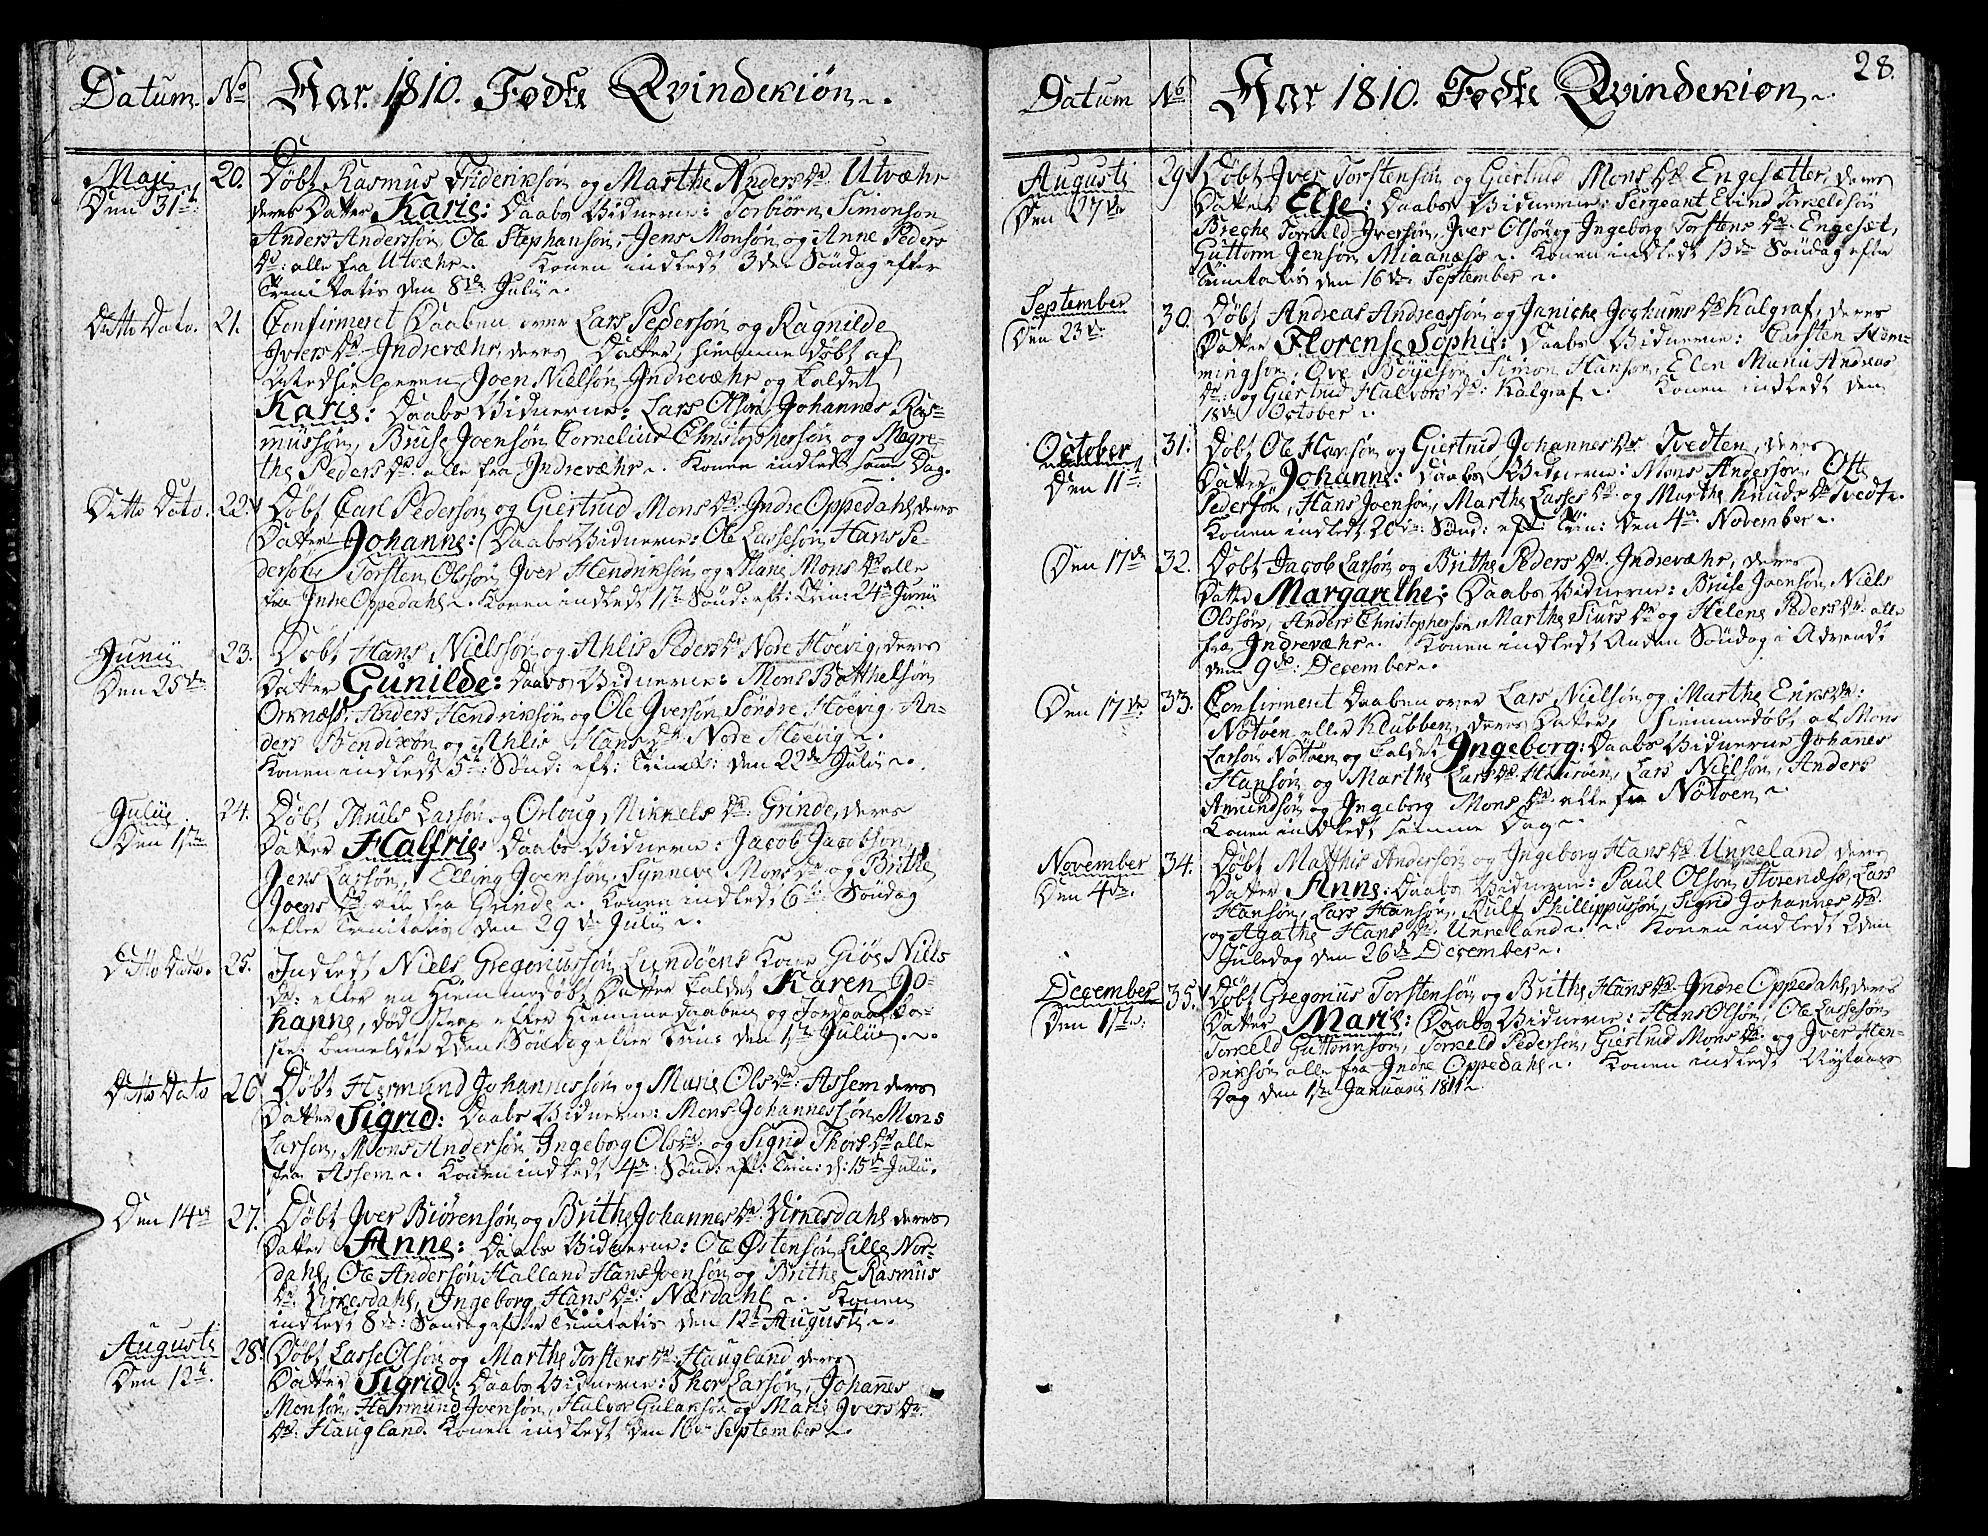 Datum No Aar. 1810. Fødte Qvindekiøn
Maji 20. Døbt Rasmus Frideriksøn og Marthe Anders Dr. Utvæhr
Den 31t. deres Datter Karie: Daabs Vidnerne: Torbiørn Simonsøn
Anders Anderssøn, Ole Stephansøn, Jens Monsøn og Anne Peders
Dr: alle fra Utvæhr. Konen indledt 3de Søndag efter
Trinitatis den 8de Julii.
Ditto Dato. 21. Confirmeret Daaben over Lars Pedersøn og Ragnilde
Ivers Dr. Indrevæhr, deres Datter, hiemmedøbt af
Joen Nielsøn Indrevæhr og kaldet
Karie: Daabs Vidnerne: Lars Olsøn, Johannes Ras-
mussøn, Bruse Joensøn, Cornelius Christophersøn og Magre-
the Peders Dr. alle fra Indrevæhr. Konen indledt samme Dag.
Ditto Dato. 22. Døbt Carl Pedersøn og Giertrud Mons Dr. Indre Oppedahl, deres
Datter Johanne: Daabs Vidnerne: Ole Larssøn, Hans Pe-
dersøn, Torsten Olssøn, Iver Hendriksøn og Mari Mons Dr. alle
fra Indre Oppedahl. Konen indledt 1te Sønd: eft: Trin: 24de Junii
Junii 23. Døbt Hans Nielssøn og Ahlis Peders Dr. Nore Høevig, deres
Den 25de Datter Gunilde: Daabs Vidnerne: Mons Botthelsøn
Orknæss, Anders Hendriksøn og Ole Iversøn Søndre Høevig, An-
ders Bendixøn og Ahlis Hans Dr. Nore Høevig.
Konen indledt 5te: Sønd: eft: Trinit: den 22de Julii.
Julii 24. Døbt Thuls Larsøn og Orloug Nikkels Dr. Grinde, deres
Den 1ste Datter Halfrie: Daabs Vidnerne: Jacob Jacobsøn,
Jens Larsøn, Elling Joensøn, Synneve Mons Dr. og Brithe
Joens Dr. alle fra Grinde. Konen indledt 6te: Søndag
efter Trinitatis den 29de Julii.
Ditto Dato. 25. Indledt Niels Gregoriussøn Lundøens Kone Giøe Niels
Dr: efter en Hiemmedøbt Datter kaldet Karen Jo-
hanne, død strax efter Hiemmedaaben og Jordpaaka-
stet bemeldte 2den Søndag efter Trin: den 1ste Julii.
Ditto Dato 26 Døbt Hermund Johannessøn og Marie Ols Dr: Assem deres
Datter Sigrid: Daabs Vidnerne: Mons Johannessøn, Mons
Larsøn, Mons Andersøn, Ingeborg Ols Dr. og Sigrid Thors Dr. alle
fra Assem. Konen indledt 4de: Sønd: eft: Trin: d: 15de Julii.
Den 14de 27. Døbt Iver Biørensøn og Brithe Johannes Dr. Virkesdahl deres
Datter Anne: Daabs Vidnerne: Ole Østensøn Lille Nor-
dahl, Ole Andersøn Halland, Hans Joensøn og Brithe Rasmus
Dr. Virkesdahl, Ingeborg Hans Dr: Nærdahl. Konen
indledt 8de: Søndag efter Trinitatis den 12te Augusti.
Augusti 28. Døbt Lasse Olsøn og Marthe Torstens Dr. Haugland deres
Den 12te. Datter Sigrid: Daabs Vidnerne: Thor Larsøn, Johannes
Monsøn, Hermund Joensøn, Halvor Gulaksøn og Marie Ivers Dr.
Dr. Haugland. Konen indledt den 16de September.
28.
Datum No Aar 1810. Fødte Qvindekiøn
Augusti 29 Døbt Iver Torstensøn og Giertrud Mons Dr. Engesætter, deres
Den 27de Datter Else: Daabs Vidnerne: Sergeant Evind Torkeldsøn
Breche, Torkeld Iversøn, Iver Olsøn og Ingeborg Torstens Dr. Engesæt,
Guttorm Jensøn Miaanæss. Konen indledt 13de Søndag efter
Trinitatis den 16de September.
September 30. Døbt Andreas Andreassøn og Janiche Jochums Dr Kalgraf, deres
Den 23de Datter Florense Sophie: Daabs Vidnerne: Carsten Hem-
mingsøn, Ove Bøyesøn, Simon Hansøn, Elen Maria Andreas
Dr: og Giertrud Halvors Dr: Kalgraf. Konen indledt den
18de October.
October 31. Døbt Ole Hansøn og Giertrud Johannes Dr Tvedten, deres
Den 11t. Datter Johanne: Daabs Vidnerne: Mons Andersøn, Ole
Pedersøn, Hans Joensøn, Marthe Lasses Dr. og Marthe Knuds Dr. Tvedte.
Konen indledt 20de: Sønd: eft: Trin: den 4de November.
Den 17de 32. Døbt Jacob Larsøn og Brithe Peders Dr. Indrevæhr, deres
Datter Margarethe: Daabs Vidnerne: Bruse Joensøn, Niels
Olssøn, Anders Christophersøn, Marthe Siurs Dr. og Helene Peders Dr. alle
fra Indrevæhr. Konen indledt Anden Søndag i Advendt
den 9de: December.
Den 17de 33. Confirmert Daaben over Lars Nielsøn og Marthe Eriks Dr:
Nøtøen eller Klubben, deres Datter, hiemmedøbt af Mons
Larsøn Nøtøen og kaldet Ingeborg: Daabs Vidnerne Johanes
Hansøn og Marthe Lars Dr. Lars Nielsøn, Anders
Amundsøn og Ingeborg Mons Dr. alle fra Nøtøen.
Konen indledt samme Dag.
November 34. Døbt Matthis Andersøn og Ingeborg Hans Dr. Unneland, deres
Den 4de. Datter Anne: Daabs Vidnerne: Paul Olsøn Storenæss, Lars
Hansøn, Lars Hansøn, Rulf Phillippussøn, Sigrid Johannes Dr.
og Agathe Hans Dr. Unneland. Konen indledt 2den
Juledag den 26de December.
December 35. Døbt Gregorius Torstensøn og Brithe Hans Dr. Indre Oppedahl, deres
Den 1ste. Datter Marie: Daabs Vidnerne: Hans Olsøn, Ole Lassesøn
Torkeld Guttormsøn, Torkeld Pedersøn, Giertrud Mons Dr. og Iver Hen-
driksøn alle fra Indre Oppedahl. Konen indledt Nytaars
Dag den 1ste Januarii 1811